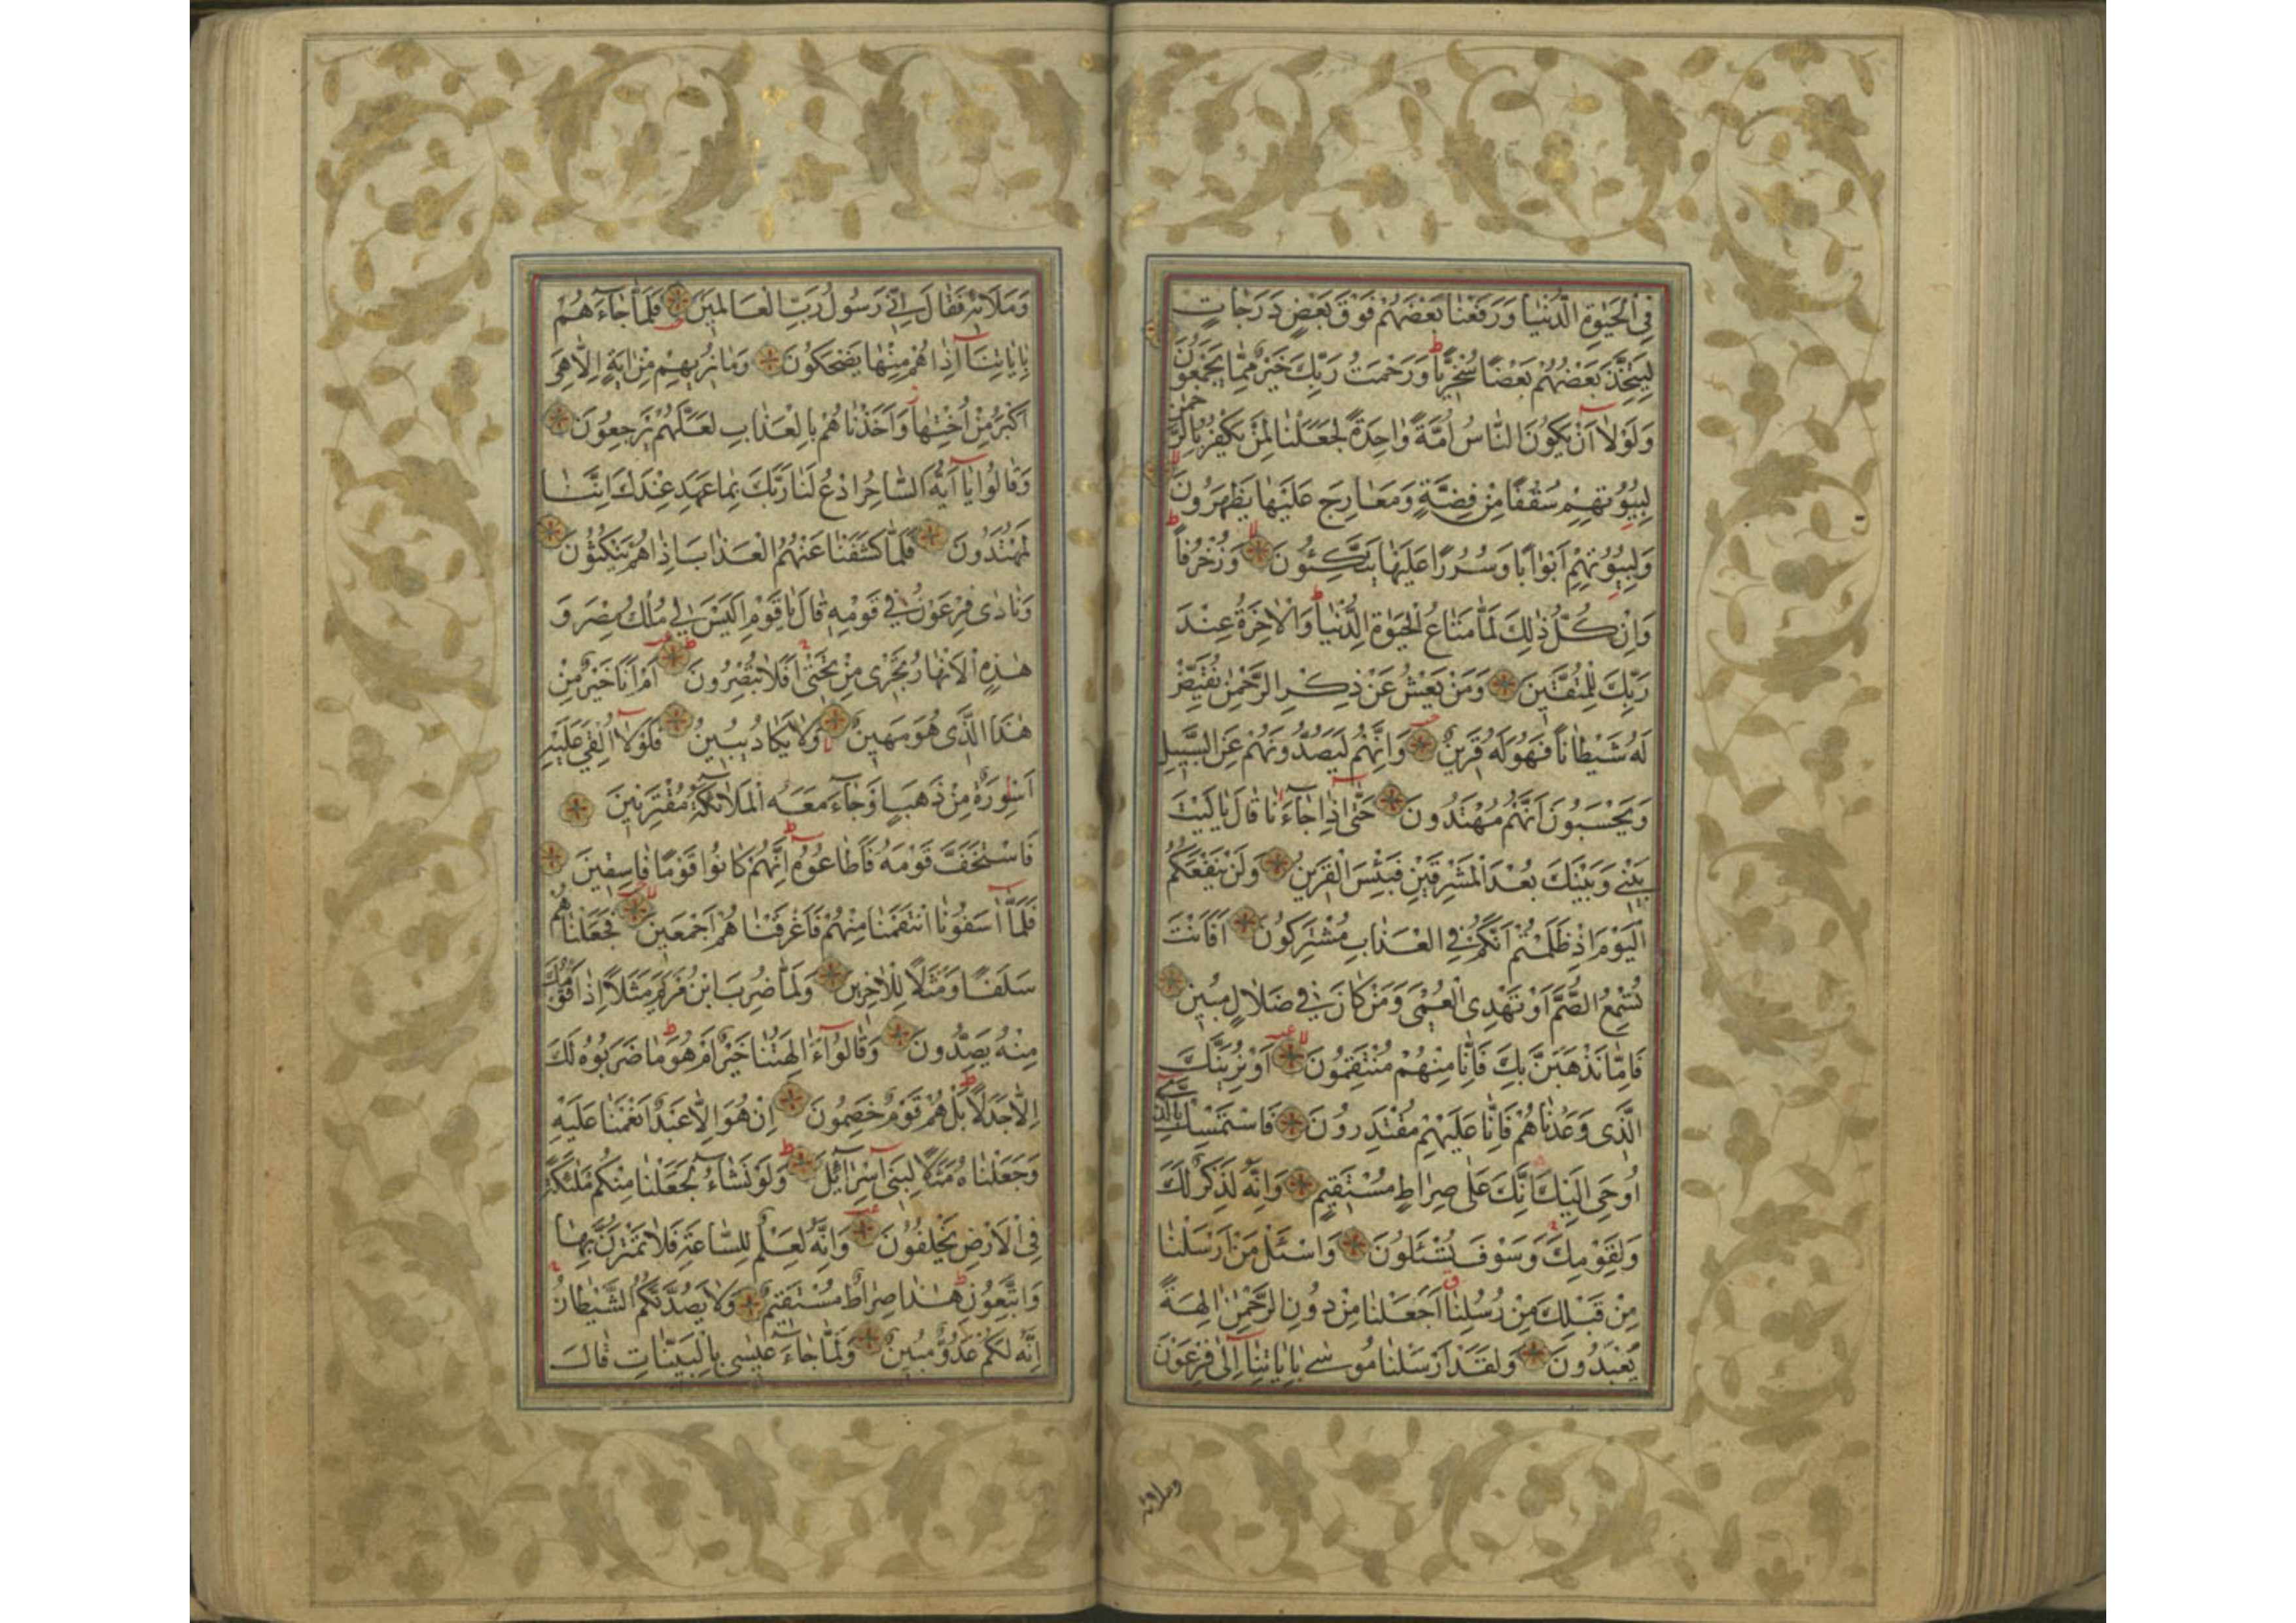 فِي الْحَيٰوةِ الدُّنْيَا وَرَفَعْنَا بَعْضَهُمْ فَوْقَ بَعْضٍ دَرَجَاتٍ
لِيَتَّخِذَ بَعْضُهُمْ بَعْضًا سُخْرِيًّا وَرَحْمَتُ رَبِّكَ خَيْرٌ مِمَّا يَجْمَعُونَ
وَلَوْلَا أَنْ يَكُونَ النَّاسُ أُمَّةً وَاحِدَةً لَجَعَلْنَا لِمَنْ يَكْفُرُ بِالرَّحْمٰنِ
لِبُيُوتِهِمْ سُقُفًا مِنْ فِضَّةٍ وَمَعَارِجَ عَلَيْهَا يَظْهَرُونَ
وَلِبُيُوتِهِمْ أَبْوَابًا وَسُرُرًا عَلَيْهَا يَتَّكِئُونَ وَزُخْرُفًا
وَإِنْ كُلُّ ذٰلِكَ لَمَّا مَتَاعُ الْحَيٰوةِ الدُّنْيَا وَالْاٰخِرَةُ عِنْدَ
رَبِّكَ لِلْمُتَّقِينَ وَمَنْ يَعْشُ عَنْ ذِكْرِ الرَّحْمٰنِ نُقَيِّضْ
لَهُ شَيْطَانًا فَهُوَ لَهُ قَرِينٌ وَإِنَّهُمْ لَيَصُدُّونَهُمْ عَنِ السَّبِيلِ
وَيَحْسَبُونَ أَنَّهُمْ مُهْتَدُونَ حَتَّى إِذَا جَاءَنَا قَالَ يَا لَيْتَ
بَيْنِي وَبَيْنَكَ بُعْدَ الْمَشْرِقَيْنِ فَبِئْسَ الْقَرِينُ وَلَنْ يَنْفَعَكُمُ
الْيَوْمَ إِذْ ظَلَمْتُمْ أَنَّكُمْ فِي الْعَذَابِ مُشْتَرِكُونَ أَفَأَنْتَ
تُسْمِعُ الصُّمَّ أَوْ تَهْدِي الْعُمْيَ وَمَنْ كَانَ فِي ضَلَالٍ مُبِينٍ
فَإِمَّا نَذْهَبَنَّ بِكَ فَإِنَّا مِنْهُمْ مُنْتَقِمُونَ أَوْ نُرِيَنَّكَ
الَّذِي وَعَدْنَاهُمْ فَإِنَّا عَلَيْهِمْ مُقْتَدِرُونَ فَاسْتَمْسِكْ بِالَّذِي
أُوحِيَ إِلَيْكَ إِنَّكَ عَلَى صِرَاطٍ مُسْتَقِيمٍ وَإِنَّهُ لَذِكْرٌ لَكَ
وَلِقَوْمِكَ وَسَوْفَ تُسْئَلُونَ وَاسْئَلْ مَنْ أَرْسَلْنَا
مِنْ قَبْلِكَ مِنْ رُسُلِنَا أَجَعَلْنَا مِنْ دُونِ الرَّحْمٰنِ اٰلِهَةً
يُعْبَدُونَ وَلَقَدْ أَرْسَلْنَا مُوسَى بِاٰيَاتِنَا إِلَى فِرْعَوْنَ
وملائه
وَمَلَائِهِ فَقَالَ إِنِّي رَسُولُ رَبِّ الْعَالَمِينَ فَلَمَّا جَاءَهُمْ
بِاٰيَاتِنَا إِذَا هُمْ مِنْهَا يَضْحَكُونَ وَمَا نُرِيهِمْ مِنْ اٰيَةٍ إِلَّا هِيَ
أَكْبَرُ مِنْ أُخْتِهَا وَأَخَذْنَاهُمْ بِالْعَذَابِ لَعَلَّهُمْ يَرْجِعُونَ
وَقَالُوا يَا أَيُّهَ السَّاحِرُ ادْعُ لَنَا رَبَّكَ بِمَا عَهِدَ عِنْدَكَ إِنَّنَا
لَمُهْتَدُونَ فَلَمَّا كَشَفْنَا عَنْهُمُ الْعَذَابَ إِذَا هُمْ يَنْكُثُونَ
وَنَادَى فِرْعَوْنُ فِي قَوْمِهِ قَالَ يَا قَوْمِ أَلَيْسَ لِي مُلْكُ مِصْرَ وَ
هٰذِهِ الْأَنْهَارُ تَجْرِي مِنْ تَحْتِي أَفَلَا تُبْصِرُونَ أَمْ أَنَا خَيْرٌ مِنْ
هٰذَا الَّذِي هُوَ مَهِينٌ وَلَا يَكَادُ يُبِينُ فَلَوْلَا أُلْقِيَ عَلَيْهِ
أَسْوِرَةٌ مِنْ ذَهَبٍ أَوْ جَاءَ مَعَهُ الْمَلَائِكَةُ مُقْتَرِنِينَ
فَاسْتَخَفَّ قَوْمَهُ فَأَطَاعُوهُ إِنَّهُمْ كَانُوا قَوْمًا فَاسِقِينَ
فَلَمَّا اٰسَفُونَا انْتَقَمْنَا مِنْهُمْ فَأَغْرَقْنَاهُمْ أَجْمَعِينَ فَجَعَلْنَاهُمْ
سَلَفًا وَمَثَلًا لِلْاٰخِرِينَ وَلَمَّا ضُرِبَ ابْنُ مَرْيَمَ مَثَلًا إِذَا قَوْمُكَ
مِنْهُ يَصِدُّونَ وَقَالُوا ءَاٰلِهَتُنَا خَيْرٌ أَمْ هُوَ مَا ضَرَبُوهُ لَكَ
إِلَّا جَدَلًا بَلْ هُمْ قَوْمٌ خَصِمُونَ إِنْ هُوَ إِلَّا عَبْدٌ أَنْعَمْنَا عَلَيْهِ
وَجَعَلْنَاهُ مَثَلًا لِبَنِي إِسْرَائِيلَ وَلَوْ نَشَاءُ لَجَعَلْنَا مِنْكُمْ مَلٰئِكَةً
فِي الْأَرْضِ يَخْلُفُونَ وَإِنَّهُ لَعِلْمٌ لِلسَّاعَةِ فَلَا تَمْتَرُنَّ بِهَا
وَاتَّبِعُونِ هٰذَا صِرَاطٌ مُسْتَقِيمٌ وَلَا يَصُدَّنَّكُمُ الشَّيْطَانُ
إِنَّهُ لَكُمْ عَدُوٌّ مُبِينٌ وَلَمَّا جَاءَ عِيسَى بِالْبَيِّنَاتِ قَالَ